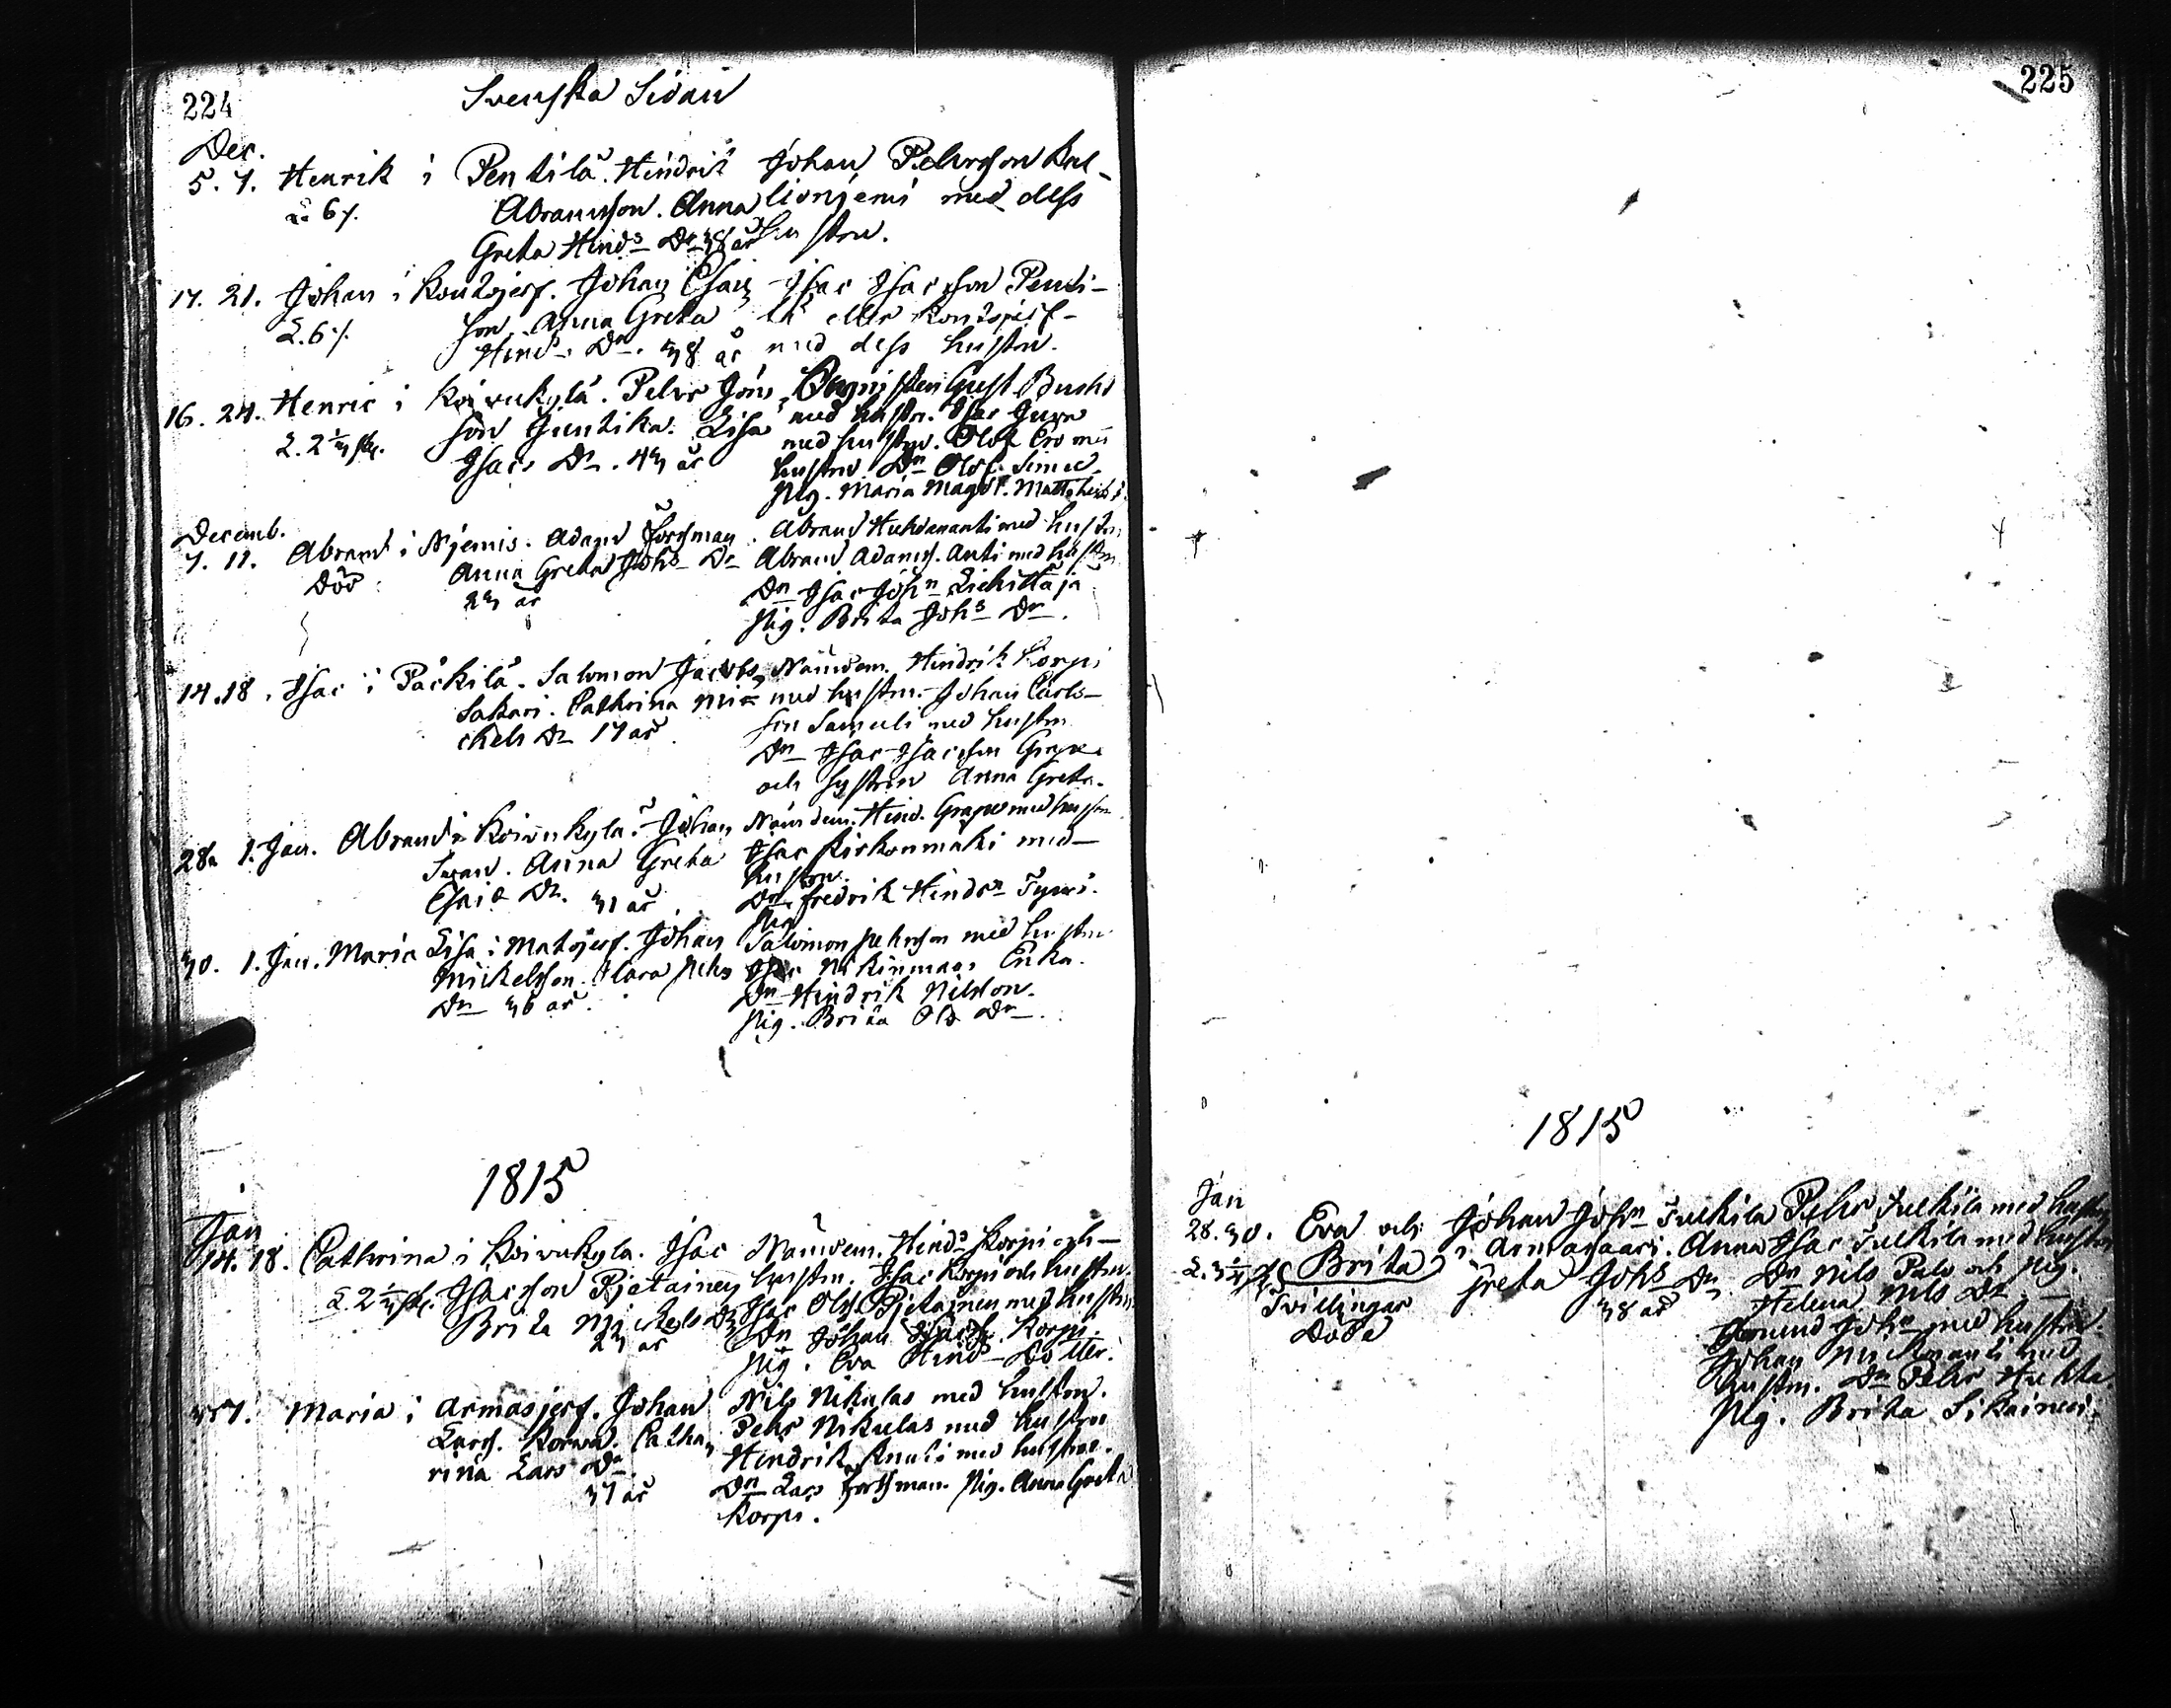 224
Svenska Sidan
Dec.
5. 7. Henrik i Pentilä. Hindrik Johan Pehrsson Kal-
L. 6 /. Abramsson. Anna lionjemi med dess
Greta Hinds Dr 38 år hustru.
17. 21. Johan i Kontojerf. Johan Esai Isac Isacsson Penti-
L. 6 /. son. Anna Greta lä eller Kontojerf
Hinds. Dr. 38 år med dess hustru.
16. 24. Henric i Koivukylä. Pehr Jöns Gust Buskt
L. 2 son Juntika. Lisa med hustru. Isac
Isacs Dr. 43 år med hustru. Olof Ero med
hustru. Dn Olof Simu
Pig. Maria Magd.
Decemb.
7. 11. Abram i Niemis. Adam Forssman. Abram Huhdananti med hustru
Död Anna Greta Johs Dr Abram Adamss. Anti med hustru
23 år Dn Isac John Liehittäjä
Pig. Brita Johs Dr.
14. 18. Isac i Päckilä. Salomon Jacobs Nämdem. Hindrik Korpi
Sakari. Cathrina Mi- med hustru. Johan Carls-
chels Dr 17 år son Samuels med hustru
Dn Isac Isacsson Grape
och Systren Anna Greta.
28. 1. Jan. Abram i Koivukylä. Johan Nämdem. Hind. Grape med hustru
Anna Greta Isac Kirkonmäki med
Esaie Dr. 31 år hustru.
Dn. Fredrik Hindrn
Pig
30. 1. Jan. Maria Lisa i Matojerf. Johan Salomon Pehrsson med hustru
Mickelsson. Clara Pehrs Isac Erika.
Dr 36 år. Dn Hindrik Nilsson.
Pig. Brita Ols Dr.
1815
Jan
14. 18. Cathrina i Koivukylä. Isac Nämdem. Hinds Korpi och
L. 2 Isacsson Pjetäinen hustru. Isac Korpi och hustru.
Brita Mickels Dr Isac Olss. Pjetäinen med hustru
23 år Dn Johan Isacss. Korpi
Pig. Eva Hinds Dotter.
7. Maria i Armasjerf. Johan Nils Nikulas med hustru.
Larss. Korva. Catha Pehr Nikulas med hustru
rina Lars Dr. Hindrik Knuti med hustru.
37 år Dn Lars Forssman. Pig. Anna Greta
Korpi.
225
1815
Jan
28. 30. Eva och Johan John Tulkila Pehr Tulkila med hustru
L. 3 Brita i Armasaari. Anna Isac Tulkila med hustru
Tvillingar Greta Johs Dr Dn Nils Palo och Pig.
Döda 38 år Helena Nils Dr
Amund John med hustru.
Johan med
hustru. Dn Pehr Huhta
Pig. Brita Sikainen